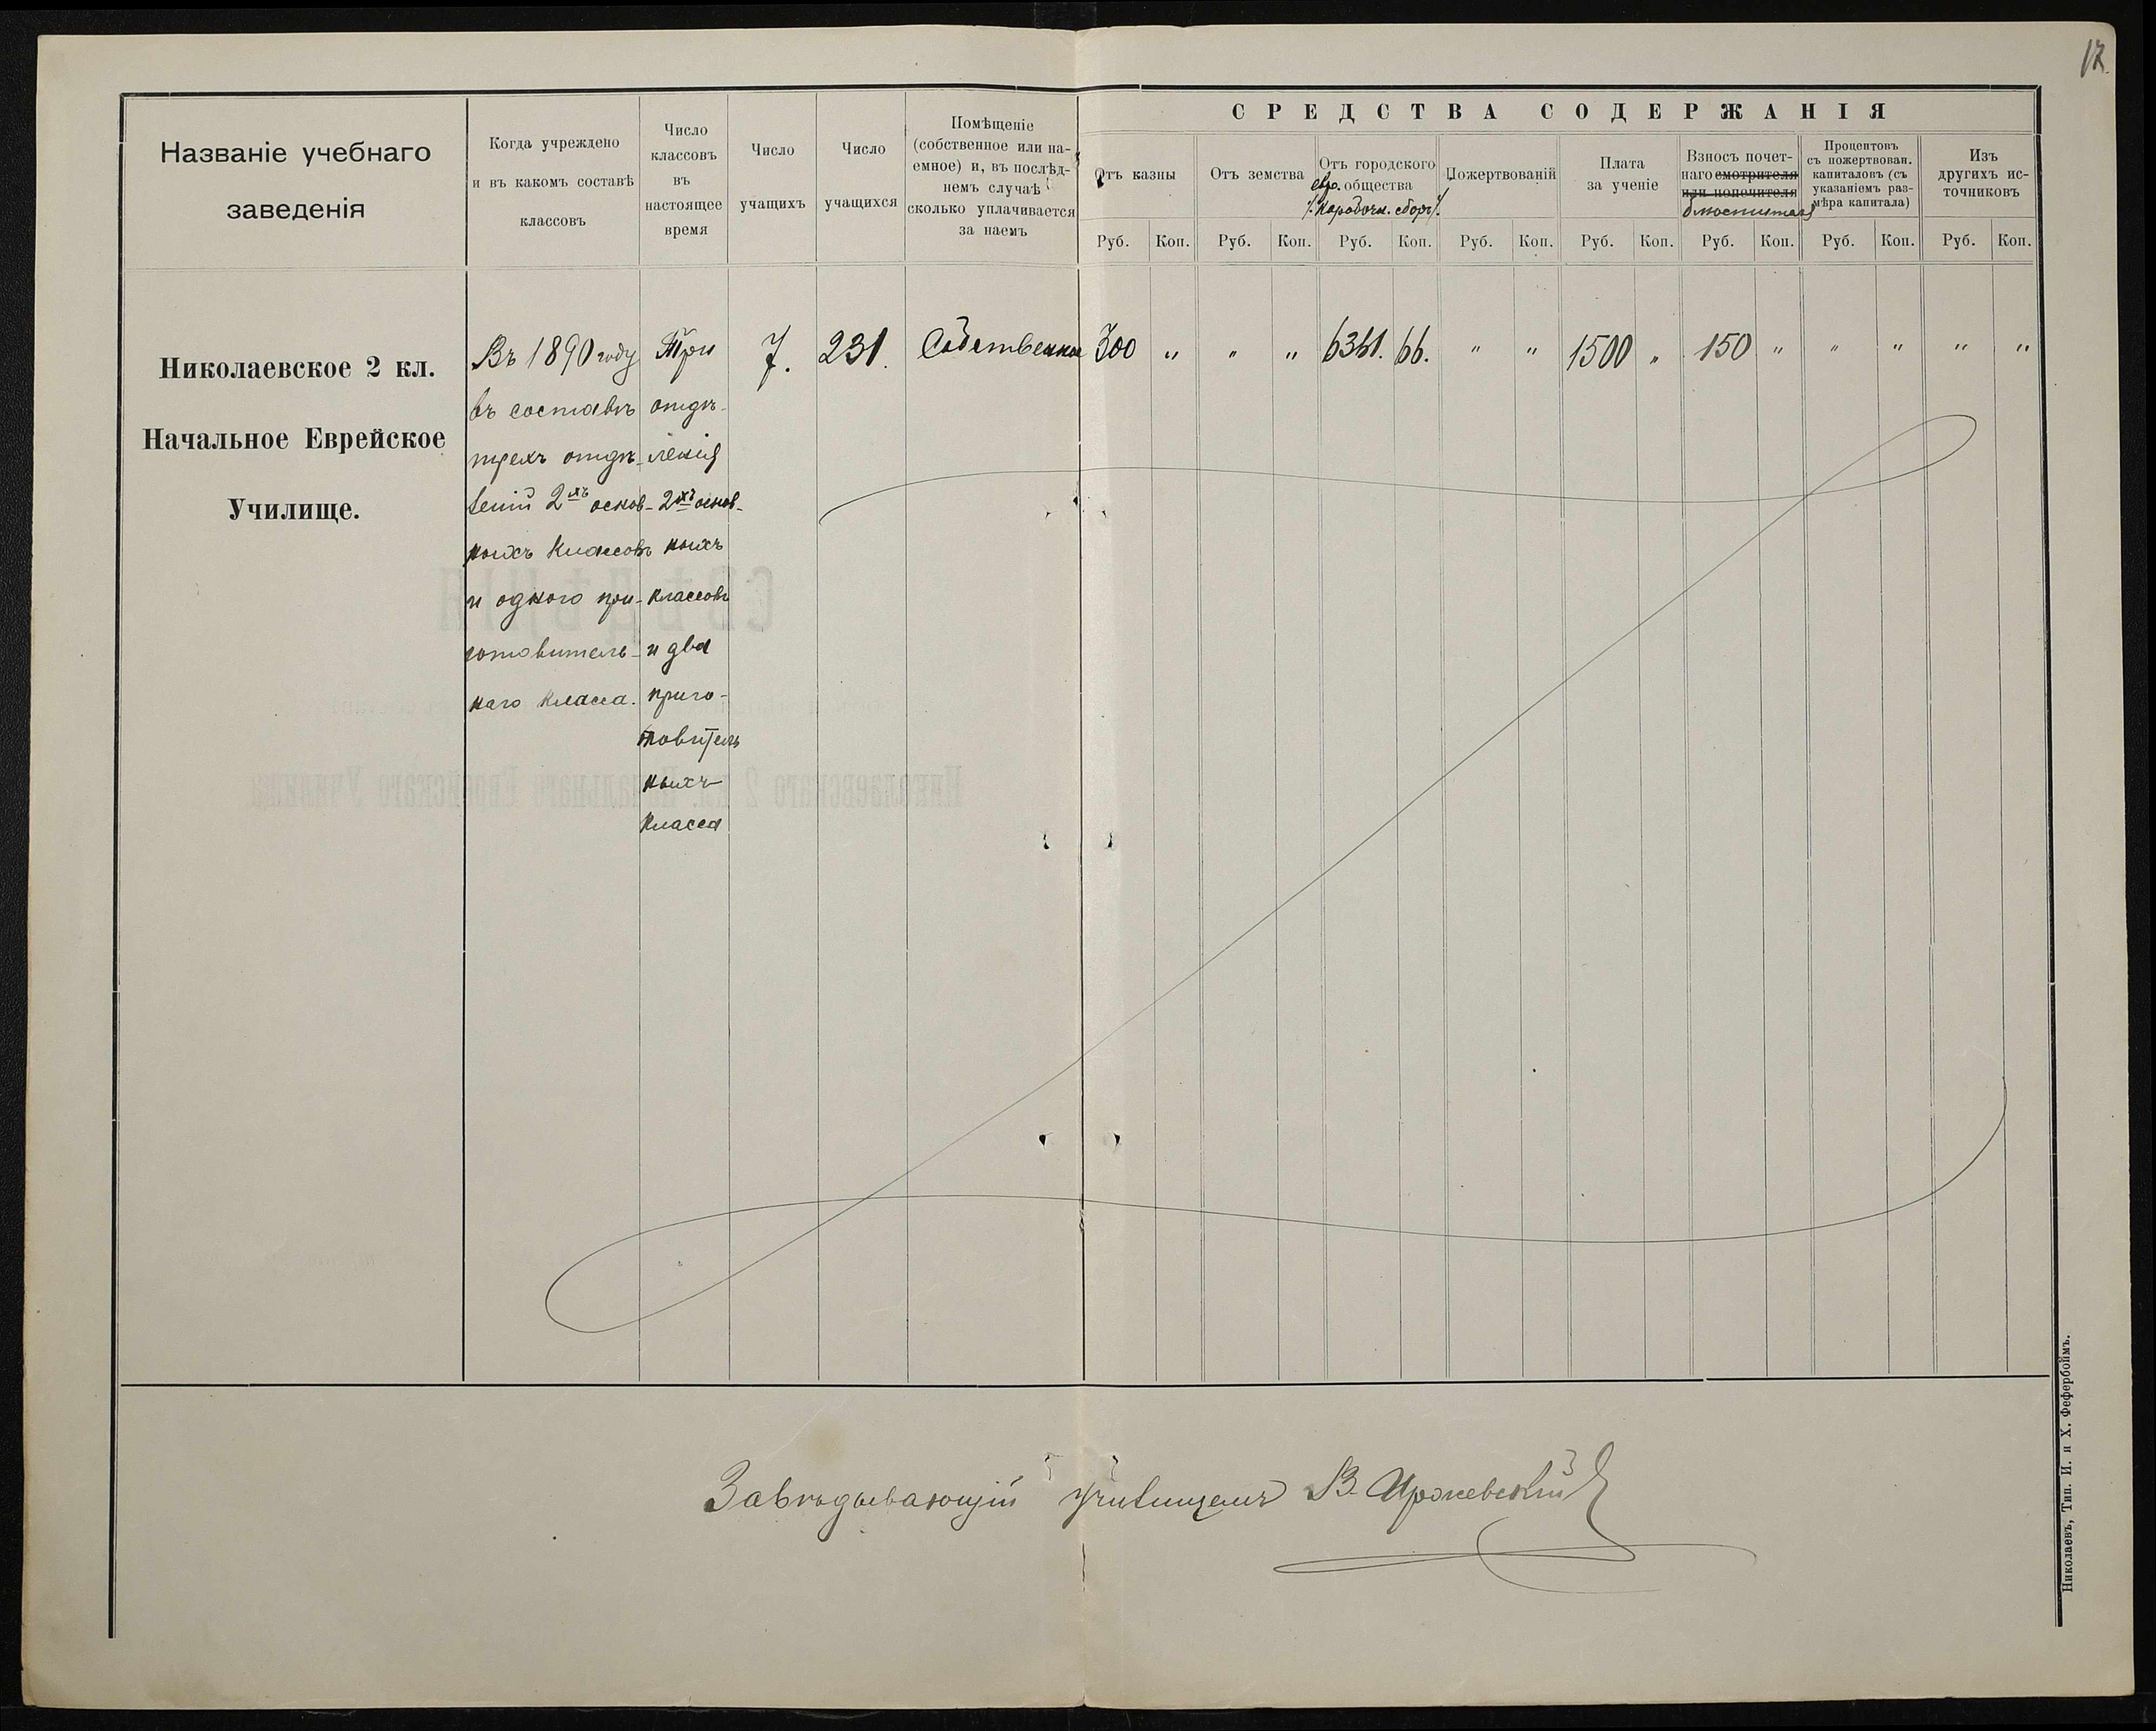 12.
Названіе учебнаго
заведенія
Когда учреждено
и въ какомъ составѣ
классовъ
Число
классовъ
въ
настоящее
время
Число
учащихъ
Число
учащихся
Помѣщеніе
(собственное или на-
емное) и, въ послѣд-
немъ случаѣ
сколько уплачивается
за наемъ
СРЕДСТВА СОДЕРЖАНІЯ
Отъ казны
Отъ земства
Отъ городского
евр. общества
/. Коробочн. сборъ /.
Пожертвованій
Плата
за ученіе
Взносъ почет-
наго смотрителя
или попечителя
блюстителя
Процентовъ
съ пожертвован.
капиталовъ (съ
указаніемъ раз-
мѣра капитала)
Изъ
другихъ ис-
точниковъ
Руб. Коп. Руб. Коп. Руб. Коп. Руб. Коп. Руб. Коп. Руб. Коп. Руб. Коп. Руб. Коп.
Николаевское 2 кл.
Начальное Еврейское
Училище.
Въ 1890 году
въ составѣ
трехъ отдѣ-
леній 2хъ основ-
ныхъ классовъ
и одного при-
готовитель-
наго класса.
Три
отдѣ-
ленія
2хъ основ-
ныхъ
классовъ
и два
приго-
товитель
ныхъ
класса
7.
231.
Собственное
300 „ „ „ 6361. 66. „ „ 1500 „ 150 „ „ „ „ „
Завѣдывающій училищемъ В. Иржевскій
Николаевъ, Тип. И. и Х. Фефербоймъ.